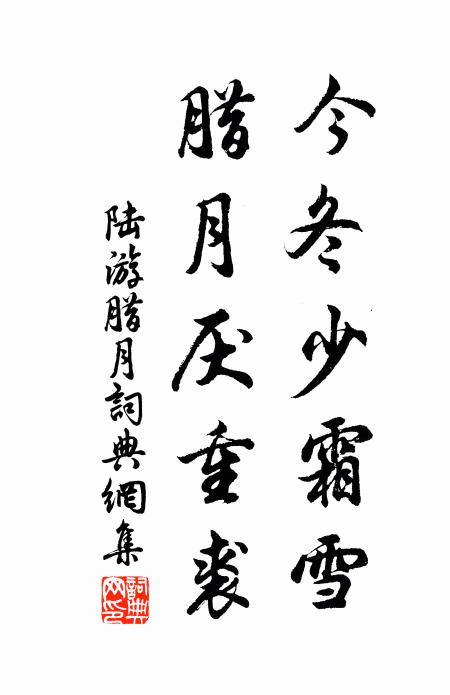 今冬少霜雪
腊月厌重裘
陆游腊月詞典網集
詞典網印